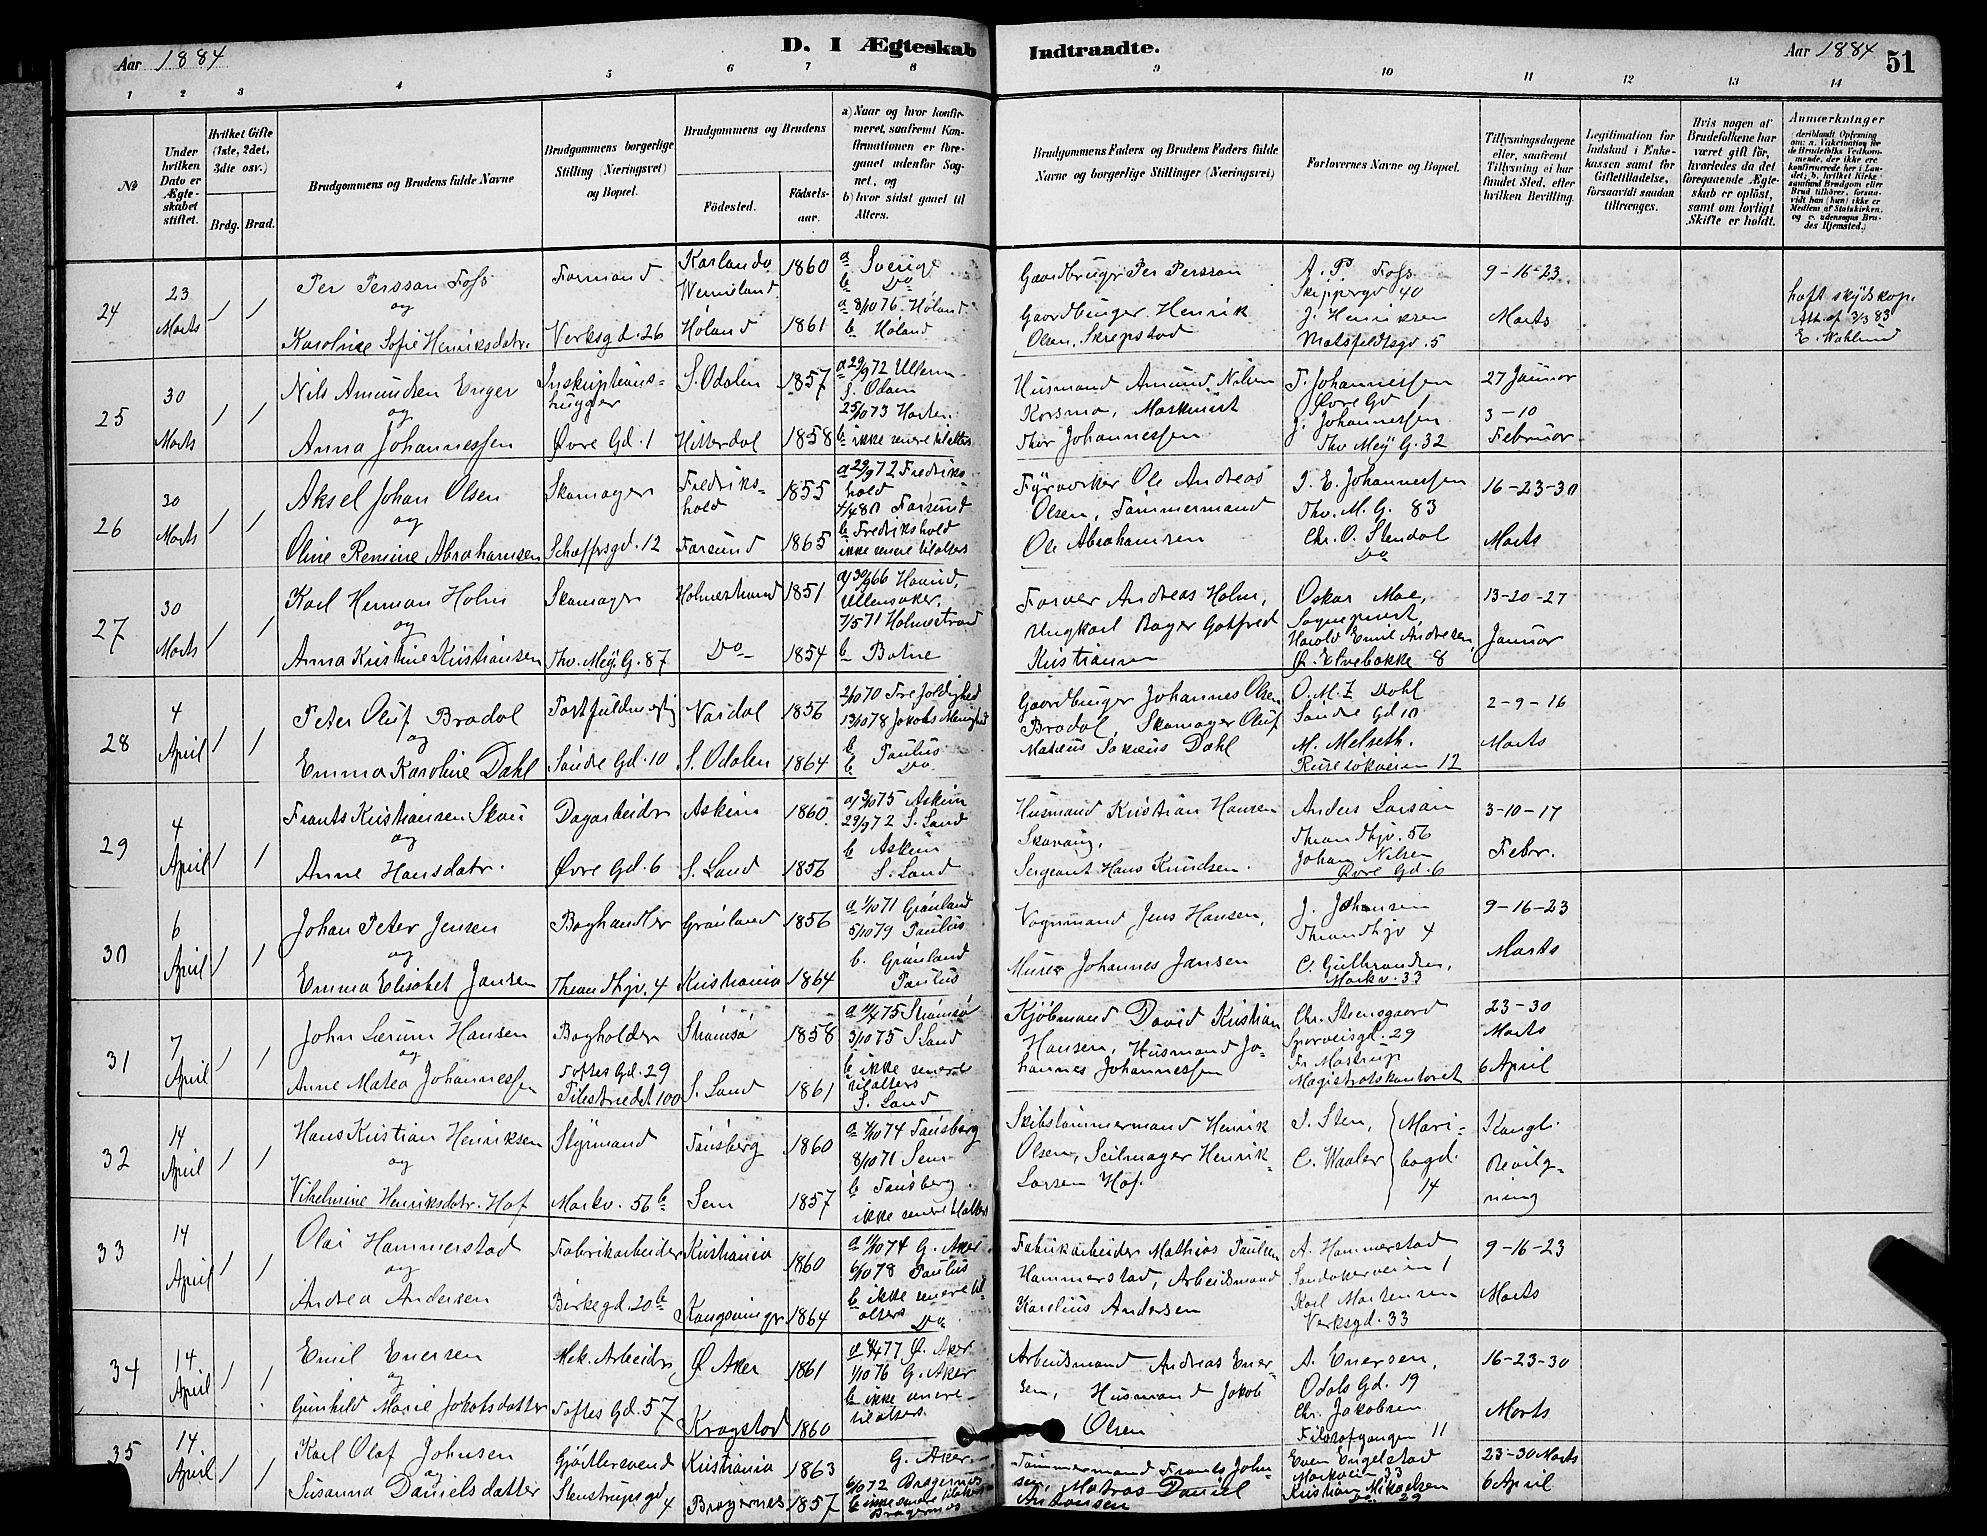 Aar 1884
D. I Ægteskab Indtraadte.
Aar 1884
51
1 2 3 4 5 6 7 8 9 10 11 12 13 14
No
Under hvilken Dato er Ægteskabet stiftet.
Hvilket Gifte (1ste, 2det, 3die osv.)
Brdg. Brud.
Brudgommens og Brudens fulde Navne
Brudgommens borgerlige Stilling (Næringsvei) og Bopæl.
Brudgommens og Brudens
Födested.
Födselsaar.
a) Naar og hvor konfirmeret, saafremt Konfirmationen er foregaaet udenfor Sognet, og
b) hvor sidst gaaet til Alters.
Brudgommens Faders og Brudens Faders fulde Navne og borgerlige Stillinger (Næringsvei)
Forlovernes Navne og Bopæl.
Tillysningsdagene eller, saafremt Tillysning ei har fundet Sted, efter hvilken Bevilling.
Legitimation for Indskud i Enkekassen samt for Giftetilladelse, forsaavidt saadan tiltrænges.
Hvis nogen af Brudefolkene har været gift før, hvorledes da det foregaaende Ægteskab er oplöst, samt om lovligt Skifte er holdt.
Anmærkninger
24
23 Marts
1 1
Per Persson Foss
og
Karoline Sofie Henriksdatr.
Formand
Verksgd. 26
Karlanda Wermland 1860
Høland 1861
a Sverige
b Do
a 8/10 76 Høland
b Høland
Gaardbruger Per Persson
Gaardbruger Henrik Olsen, Skrepstad
A. P. Foss
Skippergd 40
J. Henriksen
Motzfeldtsgd. 5
9-16-23
Marts
haft skydskop.
Att. af 3/3 83
E. Wahlund
25
30 Marts
1 1
Nils Amundsen Enger
og
Anna Johannessen
Inskriptionshugger
Øvre Gd. 1
S. Odalen 1857
Hitterdal 1858
a 29/9 72 Ullern
S. Odalen
25/10 73 Horten
b ikke senere til alters
Husmand Amund Nilsen Korsmo, Maskinist
Thor Johannessen
T. Johannessen
Øvre Gd 1
J. Johannessen
Thv Meÿ G. 32
27 Januar
3-10
Februar
26
30 Marts
1 1
Aksel Johan Olsen
og
Oline Remine Abrahamsen
Skomager
Schøffrsgd. 12
Fredrikshald 1855
Farsund 1865
a 29/9 72 Fredrikshald
4/4 80 Farsund
b Fredrikshald
ikke senere til alters
Fÿrverker Ole Andreas Olsen, Tømmermand
Ole Abrahamsen
I. E. Johannessen
Thv. M. G. 83
Chr. O. Stendal
Do
16-23-30
Marts
27
30 Marts
1 1
Karl Herman Holm
og
Anna Kristine Kristiansen
Skomager
Thv. Meÿ G. 87
Holmestrand 1851
Do 1854
a 30/9 66 Hovind, Ullensaker,
7/5 71 Holmestrand
b Botne
Farver Andreas Holm,
Ungkarl Bager Gotfred Kristiansen
Oskar Moe,
Sogneprest,
Harald Emil Andresen
Ø. Elvebakke 8
13-20-27
Januar
28
4 April
1 1
Peter Oluf Bradal
og
Emma Karoline Dahl
Postfuldmegtig
Søndre Gd. 10
Vardal 1856
S. Odalen 1864
2/10 70 Trefoldighed
13/10 78 Jakobs Menighed
b Paulus
b Do
Gaardbruger Johannes Olsen Bradal Skomager Oluf Dahl
O. M. Z Dahl
Søndre Gd 10
M. Melseth.
12
2-9-16
Marts
29
4 April
1 1
Frants Kristiansen Skou
og
Anne Hansdatr.
Dagarbeider
Øvre Gd. 6
Askim 1860
S. Land 1856
a 13/10 75 Askim
29/9 72 S. Land
b Askim
S. Land
Husmand Kristian Hansen
Sergeant Hans Knudsen.
Anders Larsen
Throndhjv. 56
Johan Nilsen
Øvre Gd. 6
3-10-17
Febr.
30
6 April
1 1
Johan Peter Jensen
og
Emma Elisabet Jansen
Boghandler
Throndhjv. 4
Grønland 1856
Kristiania 1864
a 1/10 71 Grønland
5/10 79 Paulus
b. Grønland
Paulus
Vognmand Jens Hansen,
Murer Johannes Jansen
J. Johansen
Throndhjv 4
C. Gulbrandsen,
Markv. 33
9-16-23
Marts
31
7 April
1 1
John Lærum Hansen
og
Anne Matea Johannessen
Bogholder
Toftes Gd. 29
Pilestrædet 100
Strømsø 1858
S. Land 1861
a 11/4 75 Strømsø
3/10 75 S Land
b ikke senere til alters
S. Land
Kjøbmand David Kristian Hansen, Husmand Johannes Johannessen
Chr. Stensgaard
Sporveisgd. 29
Fr. Mostrup
Magistratskontoret
23-30
Marts
6 April
32
14 April
1 1
Hans Kristian Henriksen
og
Vilhelmine Henriksdatr. Hof
Styrmand
Markv. 56 b
Tønsberg 1860
Sem 1857
a 4/10 74 Tønsberg
8/10 71 Sem
b Tønsberg
ikke senere til alters
Skibstømmermand Henrik Olsen, Seilmager Henrik Larsen Hof.
I. Sten,
C. Waaler
Maribogd. 14
Kongl. Bevilgning
33
14 April
1 1
Olai Hammerstad
og
Andrea Andersen
Fabrikarbeider
Birkegd. 20 b
Kristiania 1860
Kongsvinger 1864
a 11/10 74 G. Aker
6/10 78 Paulus
b ikke senere til alters
Do
Fabrikarbeider Mathias Paulsen Hammerstad, Arbeidsmand Karelius Andersen
A. Hammerstad
Sandakerveien 1
Karl Mortensen
Verksgd. 33
9-16-23
Marts
34
14 April
1 1
Emil Enersen
og
Gunhild Marie Jakobsdatter
Mek. Arbeider
Toftes Gd. 57
Ø Aker 1861
Kragstad 1860
a 8/4 77 Ø. Aker
1/10 76 G. Aker
b ikke senere til alters
Arbeidsmand Andreas Enersen, Husmand Jakob Olsen
A. Enersen,
Odals Gd. 19
Chr. Jakobsen
Filosofgangen 11
16-23-30
Marts
35
14. April
1 1
Karl Olaf Johnsen
og
Susanna Danielsdatter
Gjørtlersvend
Stenstrupsgd 4
Kristiania 1863
Bragernes 1857
G. Aker
6/10 72 Bragernes
b ikke senere til alters
Bragernes
Tømmermand Frants Johnsen, Matros Daniel Antonsen
Even Engelstad
Markveien 33
Kristian Mikaelsen
Do 29
23-30 Marts
6 April